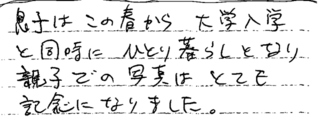 息子は この春から 大学入学
と同時に ひとり暮らしとなり
親子での写真は とても
記念になりました。